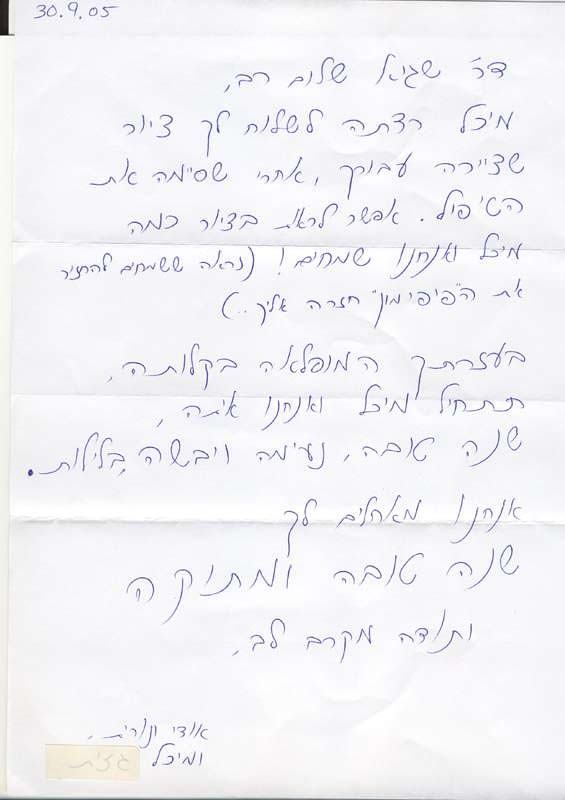 30.9.05
ד"ר שגיא שלום רב,
מיכל רצתה לשלוח לך ציור
שציירה עבורך, אחרי שסיימה את
הטיפול. אפשר לראות בציור כמה
מיכל ואנחנו שמחים! (נראה ששמחים להחזיר
את ה"פיפימון" חזרה אליך..)
בעזרתך המופלאה בקלותה,
תתחיל מיכל ואנחנו איתה,
שנה טובה, נעימה ויבשה בלילות.
אנחנו מאחלים לך
שנה טובה ומתוקה
ותודה מקרב לב,
אודי ונורית,
ומיכל